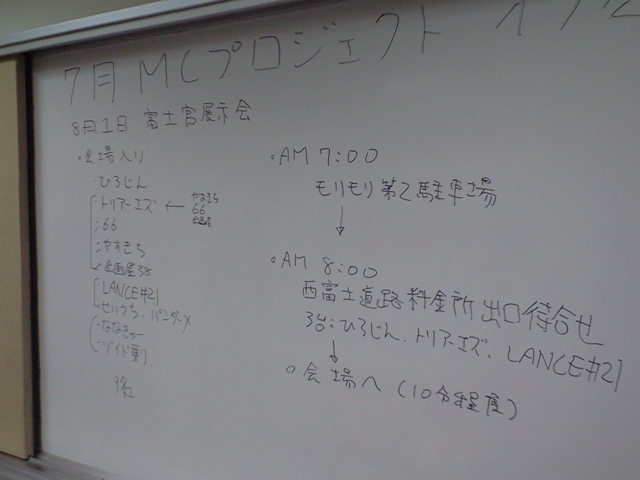 7月 MCプロジェクト
8月1日 富士宮展示会
・会場入り
・ひろじん
・トリアーエズ ←
66
・66
・やすきち
・企画屋38
・LANCE#21
・せいうち・パンダーメ
・ゾイド乗り
・AM 7:00
モリモリ第2駐車場
↓
・AM 8:00
西富士道路料金所出口待合せ
3台:ひろじん、トリアーエズ、LANCE#21
↓
○会場へ(10分程度)